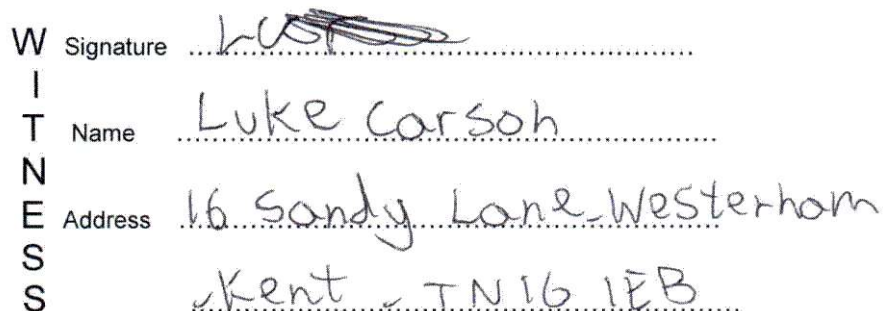 WITNESS
Signature
Name Luke Carson
Address 16 Sandy Lane Westerham
Kent TN16 1EB